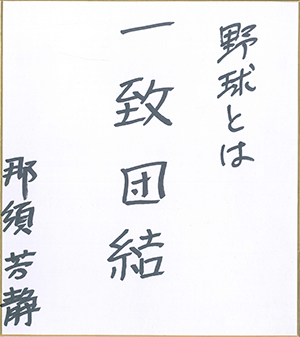 野球とは
一致団結
那須 芳静